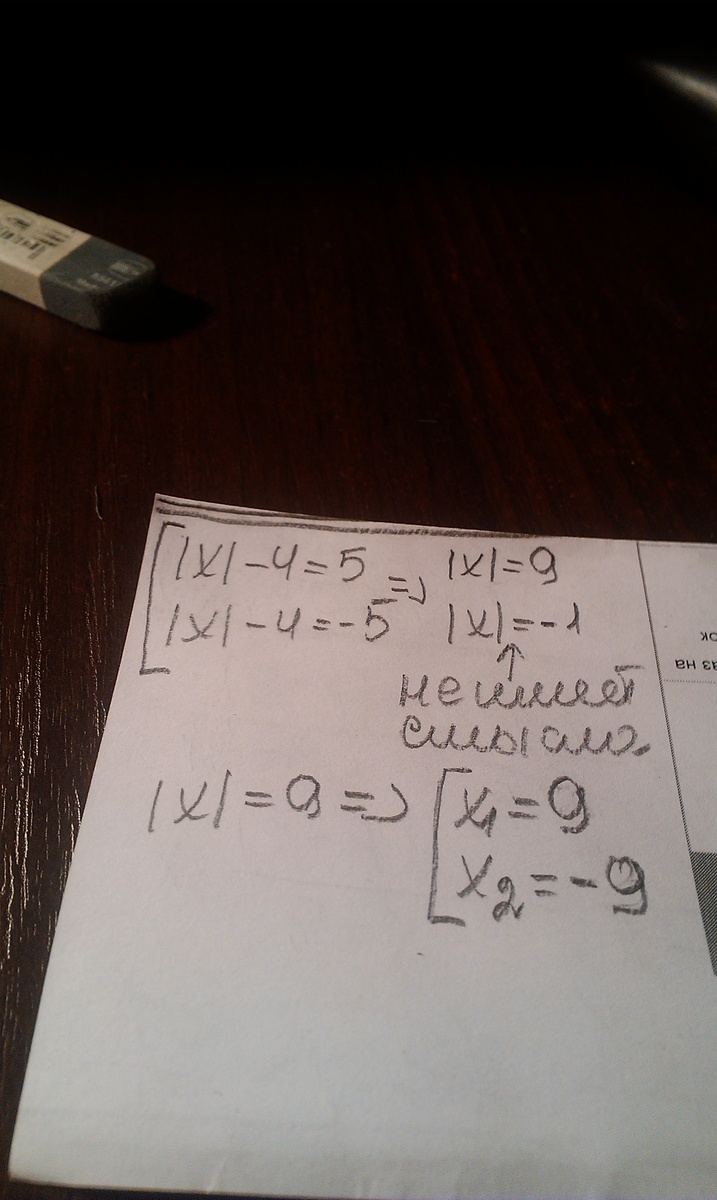 |x| - 4 = 5 => |x| = 9
|x| - 4 = -5 |x| = -1
↑
не имеет
смысла.
|x| = 9 => [ x₁ = 9
x₂ = -9
ок
аз на